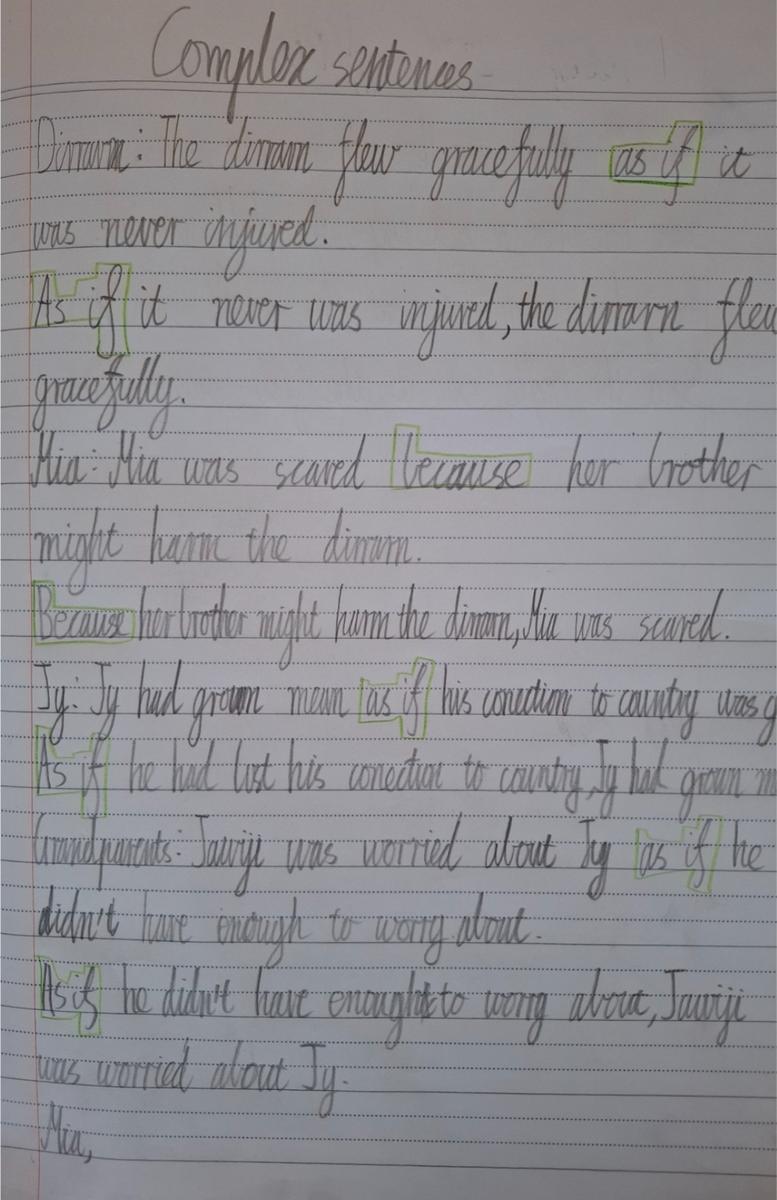 Complex sentences
Dirrarn: The dirrarn flew gracefully as if it
was never injured.
As if it never was injured, the dirrarn flew
gracefully.
Mia: Mia was scared because her brother
might harm the dirrarn.
Because her brother might harm the dirrarn, Mia was scared.
Jy: Jy had grown mean as if his conection to country was
As if he had lost his conection to country, Jy had grown
Grandparents: Jawiji was worried about Jy as if he
didn't have enough to worry about.
As if he didn't have enough to worry about, Jawiji
was worried about Jy.
Mia,